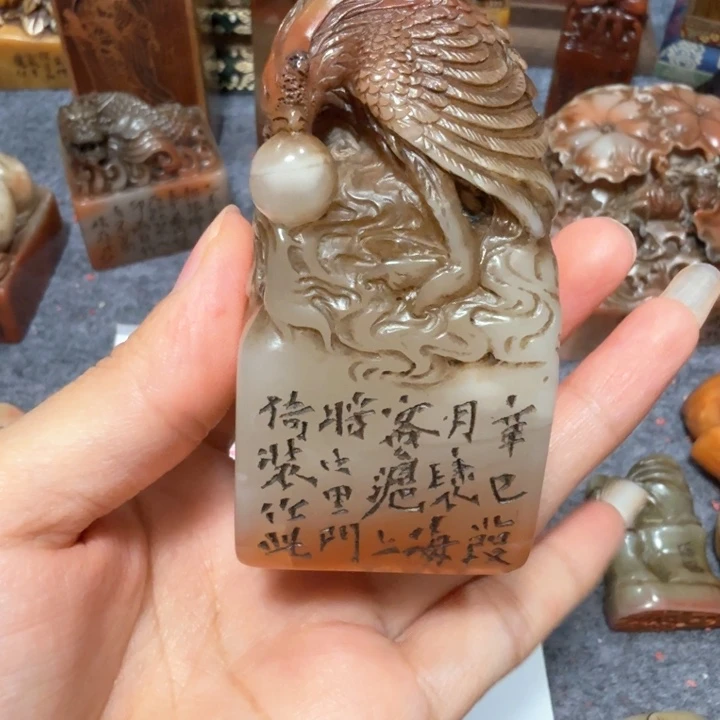 辛巳葭
月海
客滬上
將出里門
倚裝作此